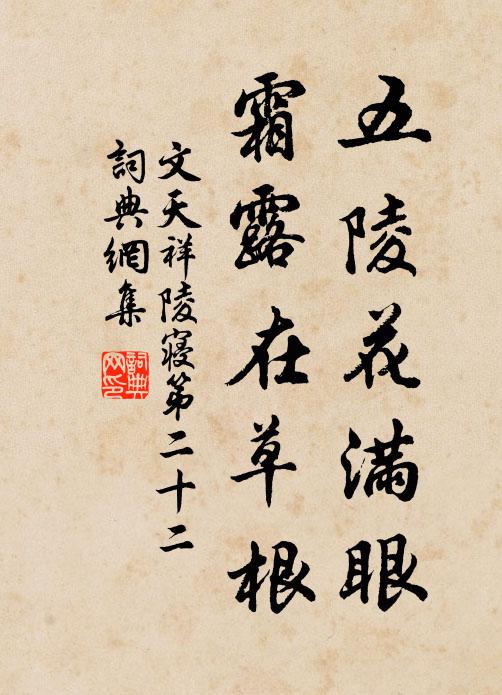 五陵花满眼
霜露在草根
文天祥陵寝第二十二
词典網集
詞典网印